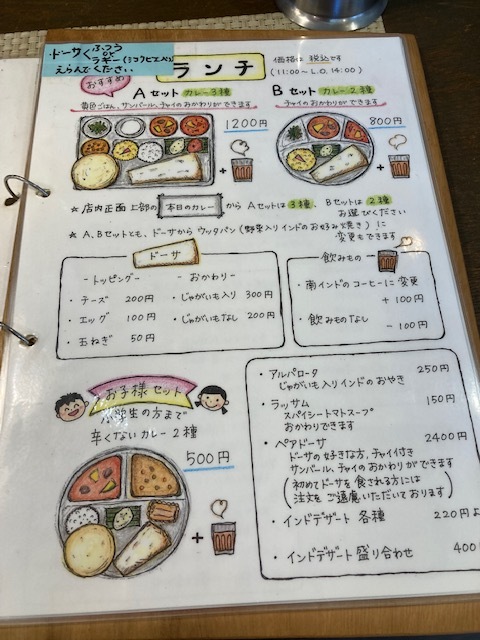 ドーサくふつう
or
ラギー(シコクビエ入り)
えらんでください
ランチ
価格は 税込です
(11:00〜L.O. 14:00)
おすすめ
Aセット カレー3種
黄色ごはん、サンバール、チャイのおかわりができます
1200円
Bセット カレー2種
チャイのおかわりができます
800円
+
+
★ 店内正面上部の 本日のカレー から Aセットは 3種、Bセットは 2種
お選びください
★ A、Bセットとも、ドーサから ウッタパン (野菜入りインドのお好み焼き) に
変更もできます
ドーサ
-トッピング-
・チーズ 200円
・エッグ 100円
・玉ねぎ 50円
-おかわり-
・じゃがいも入り 300円
・じゃがいもなし 200円
飲みもの
・南インドのコーヒーに変更
+ 100円
・飲みものなし
- 100円
お子様セット
小学生の方まで
辛くないカレー2種
500円
+
・アルパロータ 250円
じゃがいも入りインドのおやき
・ラッサム 150円
スパイシートマトスープ
おかわりできます
・ペアドーサ 2400円
ドーサの好きな方、チャイ付き
サンバール、チャイのおかわりができます
(初めてドーサを食される方には
注文をご遠慮いただいております)
・インドデザート 各種 220円よ
・インドデザート盛り合わせ 400